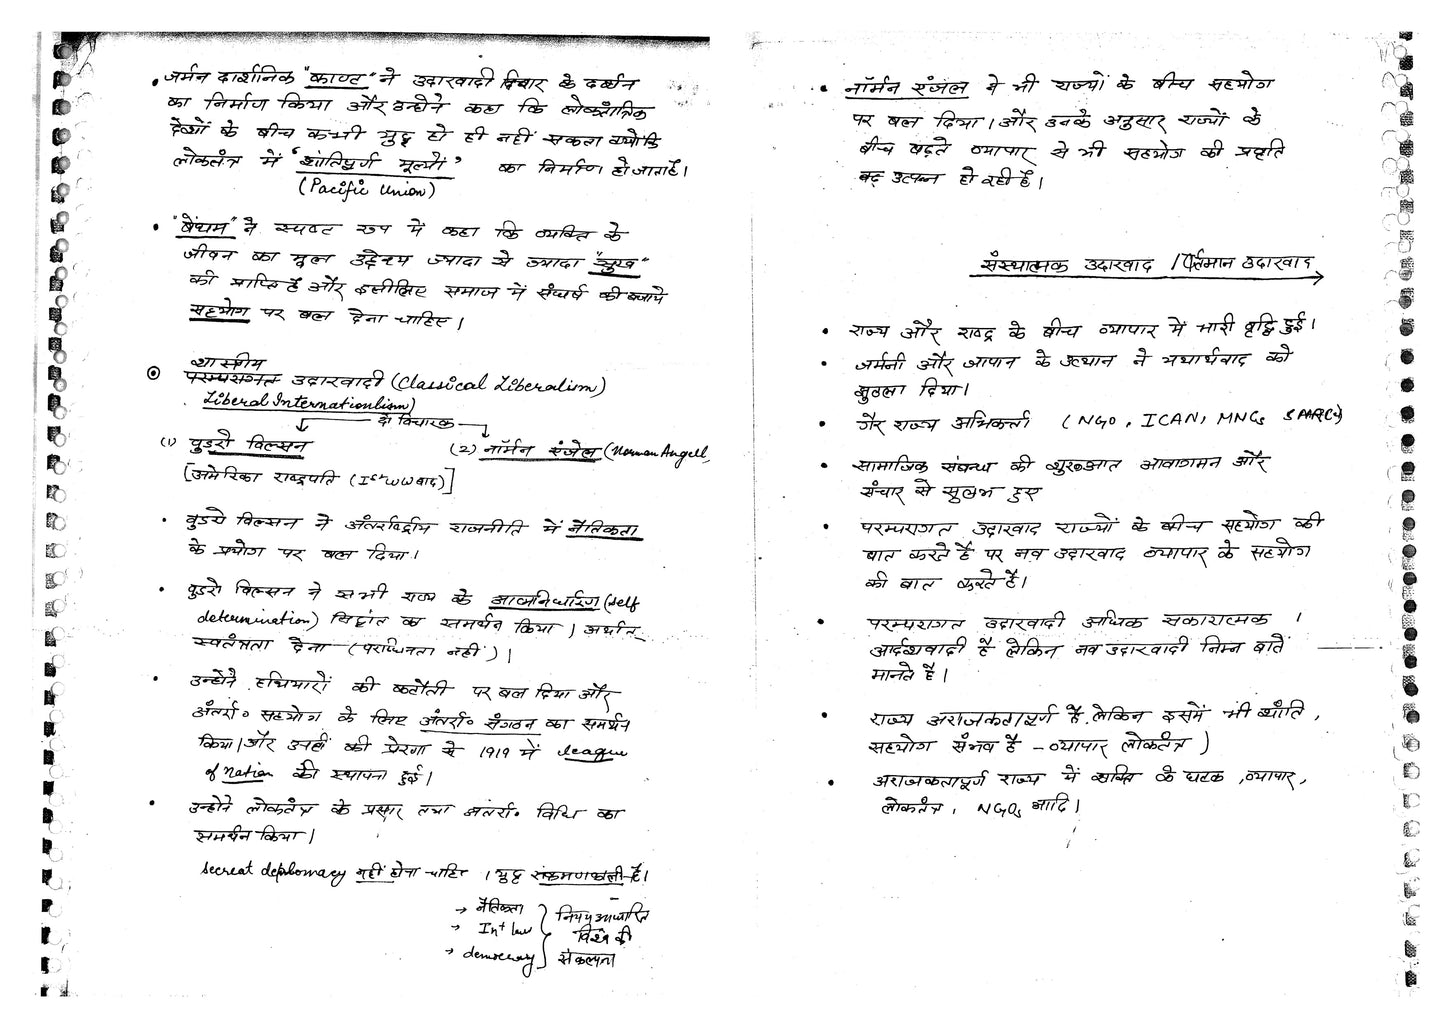 • जर्मन दार्शनिक "काण्ट" ने उदारवादी विचार के दर्शन
का निर्माण किया और उन्होंने कहा कि लोकतांत्रिक
देशों के बीच कभी युद्ध हो ही नहीं सकता क्योंकि
लोकतंत्र में "शांतिपूर्ण मूल्यों" का निर्माण हो जाता है।
(Pacific Union)
• "बेंथम" ने स्पष्ट रूप में कहा कि व्यक्ति के
जीवन का मूल उद्देश्य ज्यादा से ज्यादा "सुख"
की प्राप्ति है और इसीलिए समाज में संघर्ष की बजाये
सहयोग पर बल देना चाहिए।
शास्त्रीय
परम्परागत उदारवादी (Classical Liberalism)
Liberal Internationlism)
दो विचारक
(1) वुडरो विल्सन (2) नॉर्मन एंजेल (Norman Angell,
[अमेरिका राष्ट्रपति (Ist WW बाद)]
• वुडरो विल्सन ने अंतर्राष्ट्रीय राजनीति में नैतिकता
के प्रयोग पर बल दिया।
• वुडरो विल्सन ने सभी राज्य के आत्मनिर्धारण (self
determination) सिद्धांत का समर्थन किया। अर्थात्
स्वतंत्रता देना (पराधिनता नहीं)।
• उन्होंने हथियारों की कटौती पर बल दिया और
अंतर्रा॰ सहयोग के लिए अंतर्रा॰ संगठन का समर्थन
किया। और उनहीं की प्रेरणा से 1919 में league
of Nation की स्थापना हुई।
• उन्होंने लोकतंत्र के प्रसार तथा अंतर्रा॰ विधि का
समर्थन किया।
secreat deplomacy नहीं होना चाहिए। युद्ध संक्रमणकाली है।
→ नैतिकता
→ Int law
→ democracy
नियम आधारित
विश्व की
संकल्पना
• नॉर्मन एंजल ने भी राज्यों के बीच सहयोग
पर बल दिया। और उनके अनुसार राज्यों के
बीच बढ़ते व्यापार से भी सहयोग की प्रवृति
उत्पन्न हो रही है।
संस्थात्मक उदारवाद / वर्तमान उदारवाद
• राज्य और राष्ट्र के बीच व्यापार में भारी वृद्धि हुई।
• जर्मनी और जापान के उत्थान ने यथार्थवाद को
झुठला दिया।
• गैर राज्य अभिकर्ता (NGO, ICAN, MNCs SAARC)
• सामाजिक संबन्ध की शुरूआत आवागमन और
संचार से सुलभ हुए
• परम्परागत उदारवाद राज्यों के बीच सहयोग की
बात करते है पर नव उदारवाद व्यापार के सहयोग
की बात करते है।
• परम्परागत उदारवादी अधिक सकारात्मक।
आर्दशवादी है लेकिन नव उदारवादी निम्न बातें
मानते है।
• राज्य अराजकतापूर्ण है लेकिन इसमें भी शांति,
सहयोग संभव है - व्यापार लोकतंत्र)
• अराजकतापूर्ण राज्य में शांति के घटक, व्यापार,
लोकतंत्र, NGOs आदि।